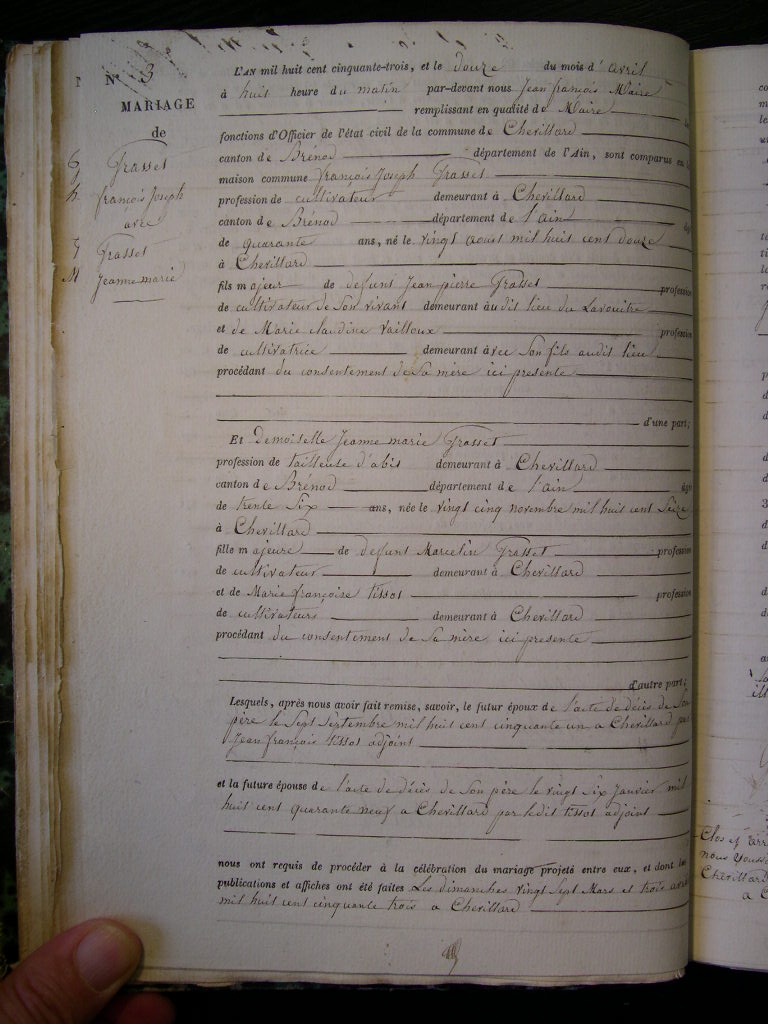 N° 3
MARIAGE
de
Grasset
françois Joseph
avec
Grasset
Jeanne marie
L'AN mil huit cent cinquante-trois, et le douze du mois d'avril
à huit heure du matin par-devant nous Jean françois Maire
remplissant en qualité de Maire
fonctions d'Officier de l'état civil de la commune de Chevillard
canton de Brénod département de l'Ain, sont comparus en la
maison commune françois Joseph Grasset
profession de cultivateur demeurant à Chevillard
canton de Brénod département de l'ain âgé
de quarante ans, né le vingt aout mil huit cent douze
à Chevillard
fils majeur de defunt Jean pierre Grasset profession
de cultivateur de Son vivant demeurant audit lieu du
et de Marie claudine vailloux profession
de cultivatrice demeurant avec Son fils audit lieu
procédant du consentement de Sa mère ici presente
d'une part;
Et Demoiselle Jeanne marie Grasset
profession de tailleuse d'abis demeurant à Chevillard
canton de Brénod département de l'ain âgé
de trente Six ans, née le vingt cinq novembre mil huit cent Seize
à Chevillard
fille majeure de defunt Marcelin Grasset profession
de cultivateur demeurant à Chevillard
et de Marie françoise tissot profession
de cultivateurs demeurant à Chevillard
procédant du consentement de Sa mère ici presente
d'autre part;
Lesquels, après nous avoir fait remise, savoir, le futur époux de l'acte de décès de Son
père le Sept Septembre mil huit cent cinquante un a Chevillard par
Jean françois tissot adjoint
et la future épouse de l'acte de décès de Son père le vingt Six Janvier mil
huit cent quarante neuf a Chevillard par ledit tissot adjoint
nous ont requis de procéder à la célébration du mariage projeté entre eux, et dont les
publications et affiches ont été faites Les dimanches vingt Sept Mars et trois avril
mil huit cent cinquante trois a Chevillard